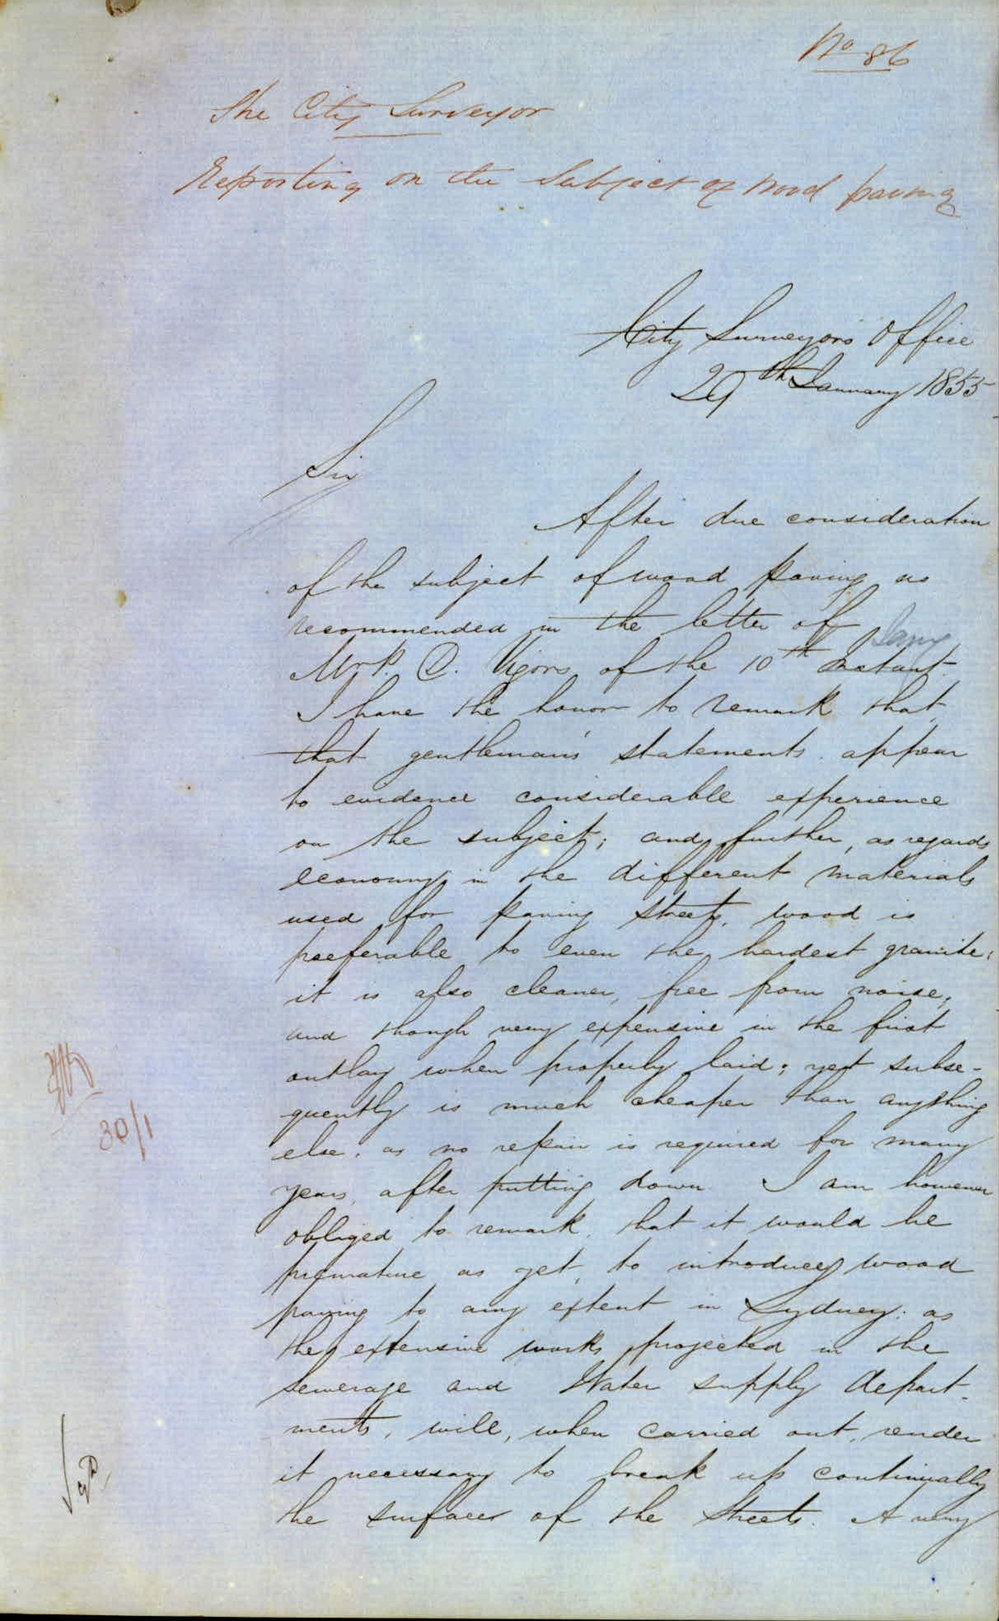 No. 86
The City Surveyor
Reporting on the Subject of Wood paving
City Surveyors Office
29th January 1855
Sir
After due consideration
of the subject of wood paving as
recommended in the letter of
Mr P. C. Vigors of the 10th Instant
I have the honor to remark that,
that gentleman's statements appear
to evidence considerable experience
on the subject; and further, as regards
economy in the different materials
used for paving streets, wood is
preferable to even the hardest granite;
it is also cleaner, free from noise,
and though very expensive in the first
outlay when properly laid; yet subse-
quently is much cheaper than anything
else, as no repair is required for many
years, after putting down I am however
obliged to remark, that it would be
premature as yet, to introduce wood
paving to any extent in Sydney: as
the extensive works projected in the
sewerage and Water supply depart-
ments, will, when carried out, render
it necessary to break up continually
the surfaces of the Streets. A very
30/1